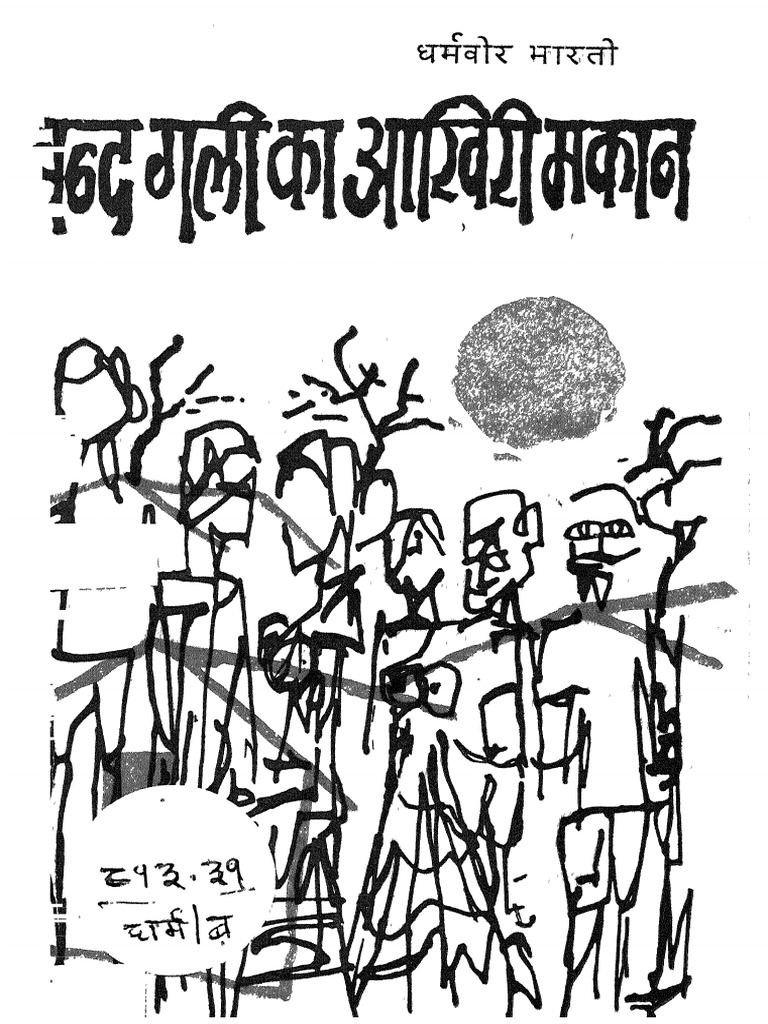 धर्मवीर भारती
बन्द गली का आखिरी मकान
८१३.३१
धर्म/ब